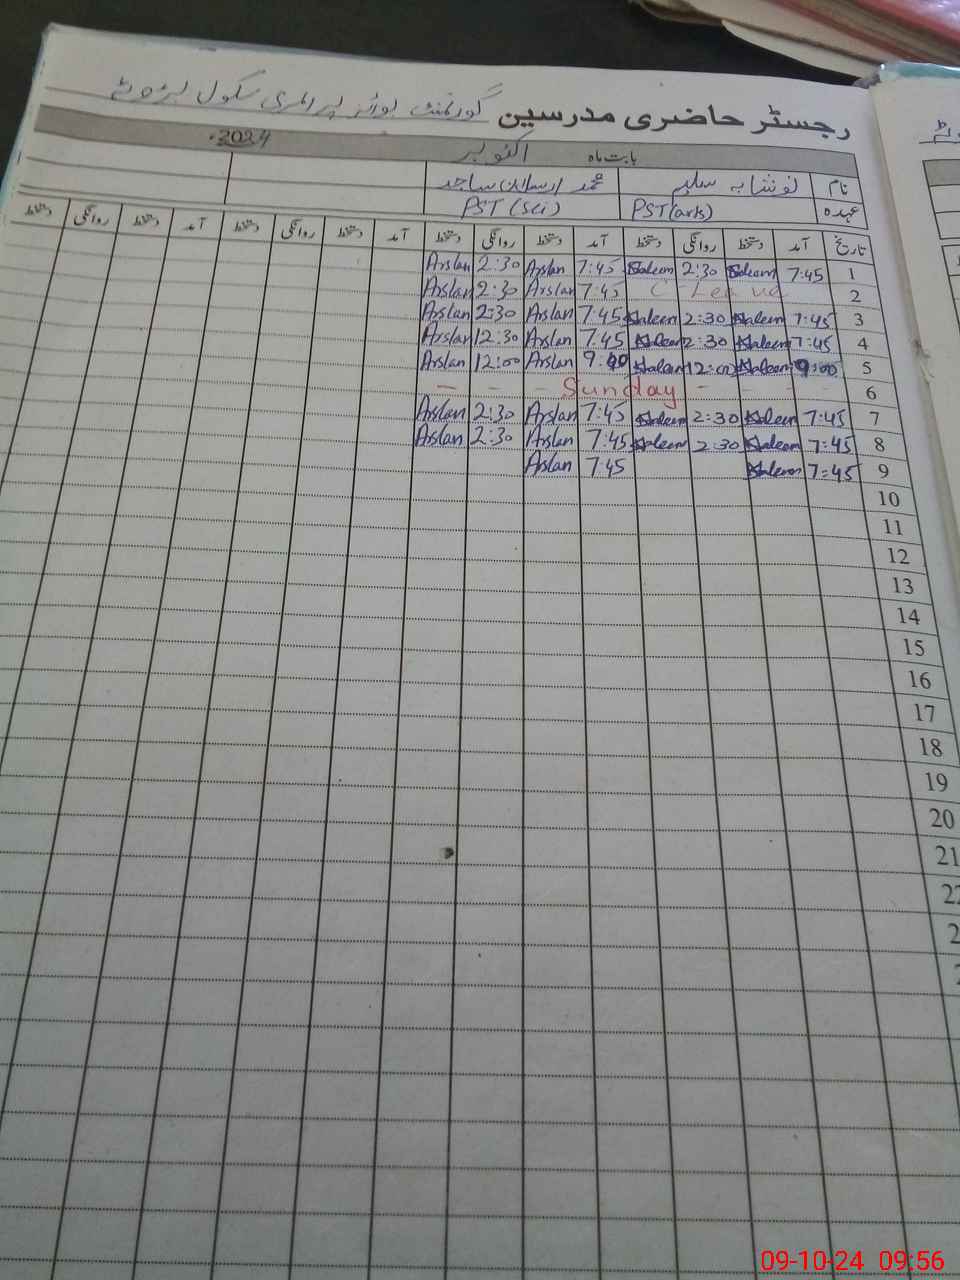 رجسٹر حاضری مدرسین گورنمنٹ بوائز پرائمری سکول
بابت ماہ اکتوبر 2024ء
نام نوشابہ سلیم محمد ارسلان ساجد
عہدہ PST(arts) PST(sci)
تاریخ آمد دستخط روانگی دستخط آمد دستخط روانگی دستخط آمد دستخط روانگی دستخط آمد دستخط روانگی دستخط
1 7:45 Saleem 2:30 Saleem 7:45 Arslan 2:30 Arslan
2 C Leave 7:45 Arslan 2:30 Arslan
3 7:45 Saleem 2:30 Saleem 7:45 Arslan 2:30 Arslan
4 7:45 Saleem 2:30 Saleem 7:45 Arslan 12:30 Arslan
5 9:00 Saleem 12:00 Saleem 9:00 Arslan 12:00 Arslan
6 - - - Sunday -
7 7:45 Saleem 2:30 Saleem 7:45 Arslan 2:30 Arslan
8 7:45 Saleem 2:30 Saleem 7:45 Arslan 2:30 Arslan
9 7:45 Saleem 7:45 Arslan
10
11
12
13
14
15
16
17
18
19
20
21
22
09-10-24 09:56